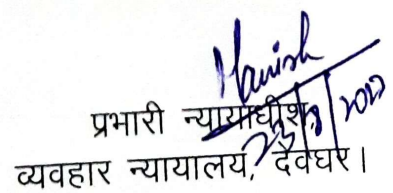 Manish
प्रभारी न्यायाधीश,
व्यवहार न्यायालय, देवघर।